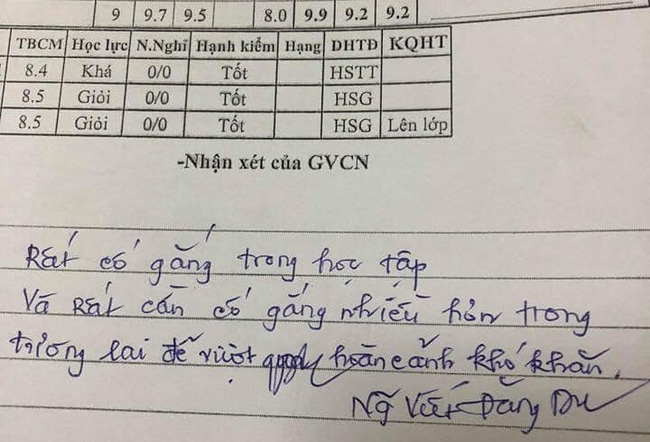 9 9.7 9.5 8.0 9.9 9.2 9.2
TBCM Học lực N.Nghĩ Hạnh kiểm Hạng DHTĐ KQHT
8.4 Khá 0/0 Tốt HSTT
8.5 Giỏi 0/0 Tốt HSG
8.5 Giỏi 0/0 Tốt HSG Lên lớp
-Nhận xét của GVCN
Rất cố gắng trong học tập
Và Rất cần cố gắng nhiều hơn trong
tương lai để vượt qua hoàn cảnh khó khăn.
Ng Viết Đăng Du